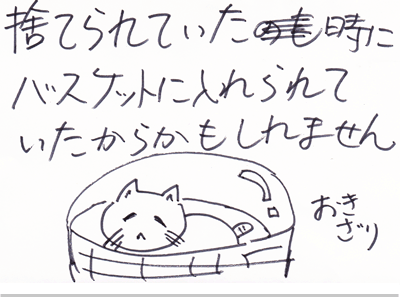 捨てられていた時に
バスケットに入れられて
いたからかもしれません
おき
ざり